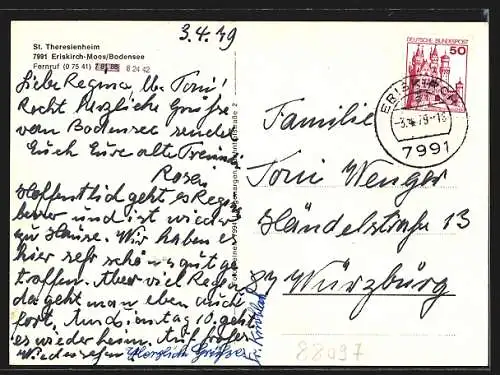 3.4.79
St. Theresienheim
7991 Eriskirch-Moos/Bodensee
Fernruf (0 75 41) 8 24 42
Liebe Regina u. Toni!
Recht herzliche Grüße
vom Bodensee sendet
Euch Eure alte Freundin
Rosa
Hoffentlich geht es Regina
besser und ist wieder
zu Hause. Wir haben
hier sehr schön gut ge
troffen. Aber viel Regen
da geht man eben nicht
fort. Am Dienstag 10. geht
es wieder heim. Auf frohes
Wiedersehen
Herzliche Grüße
DEUTSCHE BUNDESPOST
50
ERISKIRCH
-3.4.79-18
7991
Familie
Toni Wenger
Händelstraße 13
Würzburg
88097